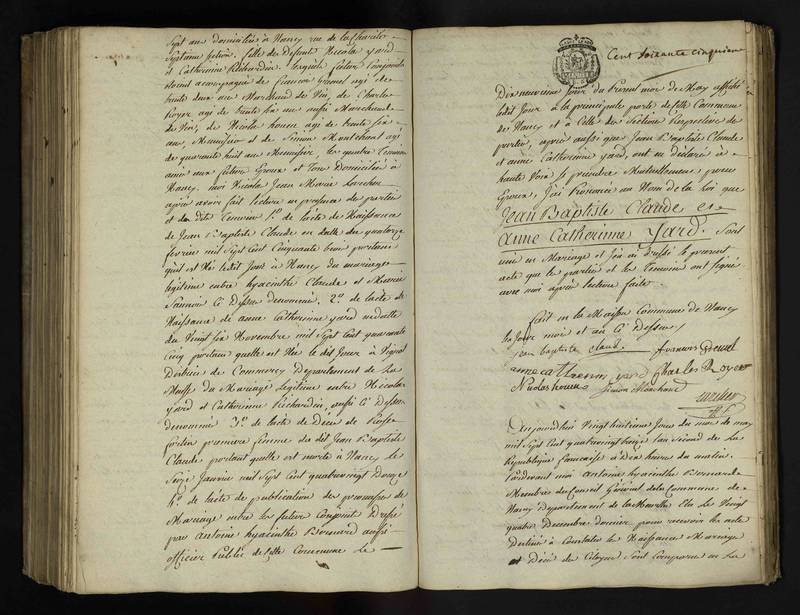 Sept ans domiciliée à Nancy rue de la Charité
Septieme Section, fille des Defunts Nicolas yard
et Catherine Richardin. lesquels futurs Conjoints
étoient accompagnés de francois Grosset agé de
trente deux ans Marchand de Vin, de Charles
Royer agé de trente six ans aussi Marchand
de Vin, de Nicolas houen agé de trente six
ans, Menuisier et de Simon Monchant agé
de quarante huit ans Menuisier, les quatre temoins
amis aux futurs Epoux et tous Domiciliés à
Nancy. moi Nicolas Jean Marie
après avoir fait lecture en presence des parties
et des dits temoins 1.° de l'acte de Naissance
de Jean Baptiste Claude en datte du quatorze
fevrier mil Sept Cent Cinquante trois portant
qu'il est Né ledit Jour à Nancy du mariage
légitime entre hyacinthe Claude et Marie
Ci Dessus denommés. 2.° de l'acte de
Naissance de anne Catherine yard en datte
du Vingt Six Novembre mil Sept Cent quarante
Cinq portant quelle est Née le dit Jour à Vignot
District de Commercy Departement de La
Meuse du Mariage Légitime entre Nicolas
yard et Catherine Richardin, aussi Ci Dessus
denommés 3.° de l'acte de Décès de Rose
fortin premiere femme du dit Jean Baptiste
Claude portant quelle est morte à Nancy le
Seize Janvier mil Sept Cent quatrevingt Douze
4.° de l'acte de publication des promesses de
Mariage entre les futurs Conjoints Dressé
par Antoine hyacinthe Bernard aussi
officier Public de cette Commune Le
Cent Soixante cinquieme
Dix neuvieme Jour du present mois de May affiché
ledit Jour à la principale porte de cette Commune
de Nancy et à Celle des Sections Respectives des
parties, après aussi que Jean Baptiste Claude
et anne Catherine yard, ont eu déclaré à
haute Voix se prendre Mutuellement pour
Epoux, J'ai Prononcé au Nom de la loi que
Jean Baptiste Claude et
anne Catherinne yard. Sont
unis en Mariage et j'en ai dressé le present
acte que les parties et les temoins ont signé
avec moi après lecture faite.
Fait en la Maison Commune de Nancy
les Jour mois et an Ci Dessus
jean baptiste claud. francois Grosset
anne catherinne yard Charles Royer
Nicolas houen Simon Monchant
Aujourdhui Vingt huitieme Jour du mois de may
mil Sept Cent quatrevingt treize l'an Second de La
Republique francaise à Dix heures du matin.
Pardevant moi Antoine hyacinthe Bernard
Membre du Conseil Général de la Commune de
Nancy Departement de la Meurthe Elu Le Vingt
quatre Decembre dernier pour recevoir les actes
Destinés à Constater les Naissances Mariages
et Décès des Citoyens Sont Comparus en La